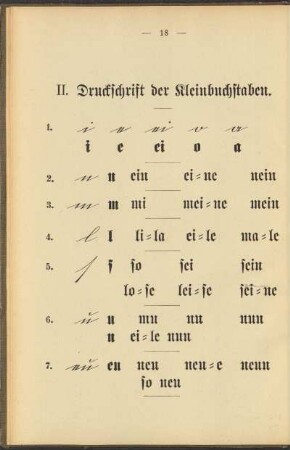 — 18 —
II. Druckschrift der Kleinbuchstaben.
1. i e ei o a
i e ei o a
2. n n ein ei=ne nein
3. m m mi mei=ne mein
4. l l li=la ei=le ma=le
5. s s so sei sein
lo=se lei=se sei=ne
6. u u mu nu nun
u ei=le nun
7. eu eu neu neu=e neun
so neu